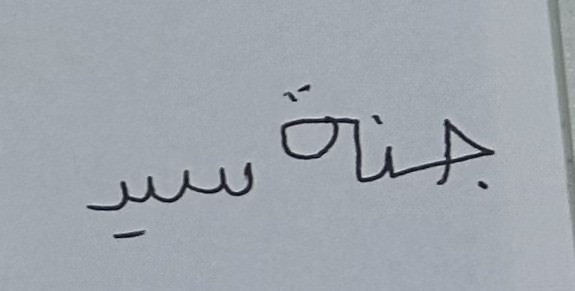 جنة سير